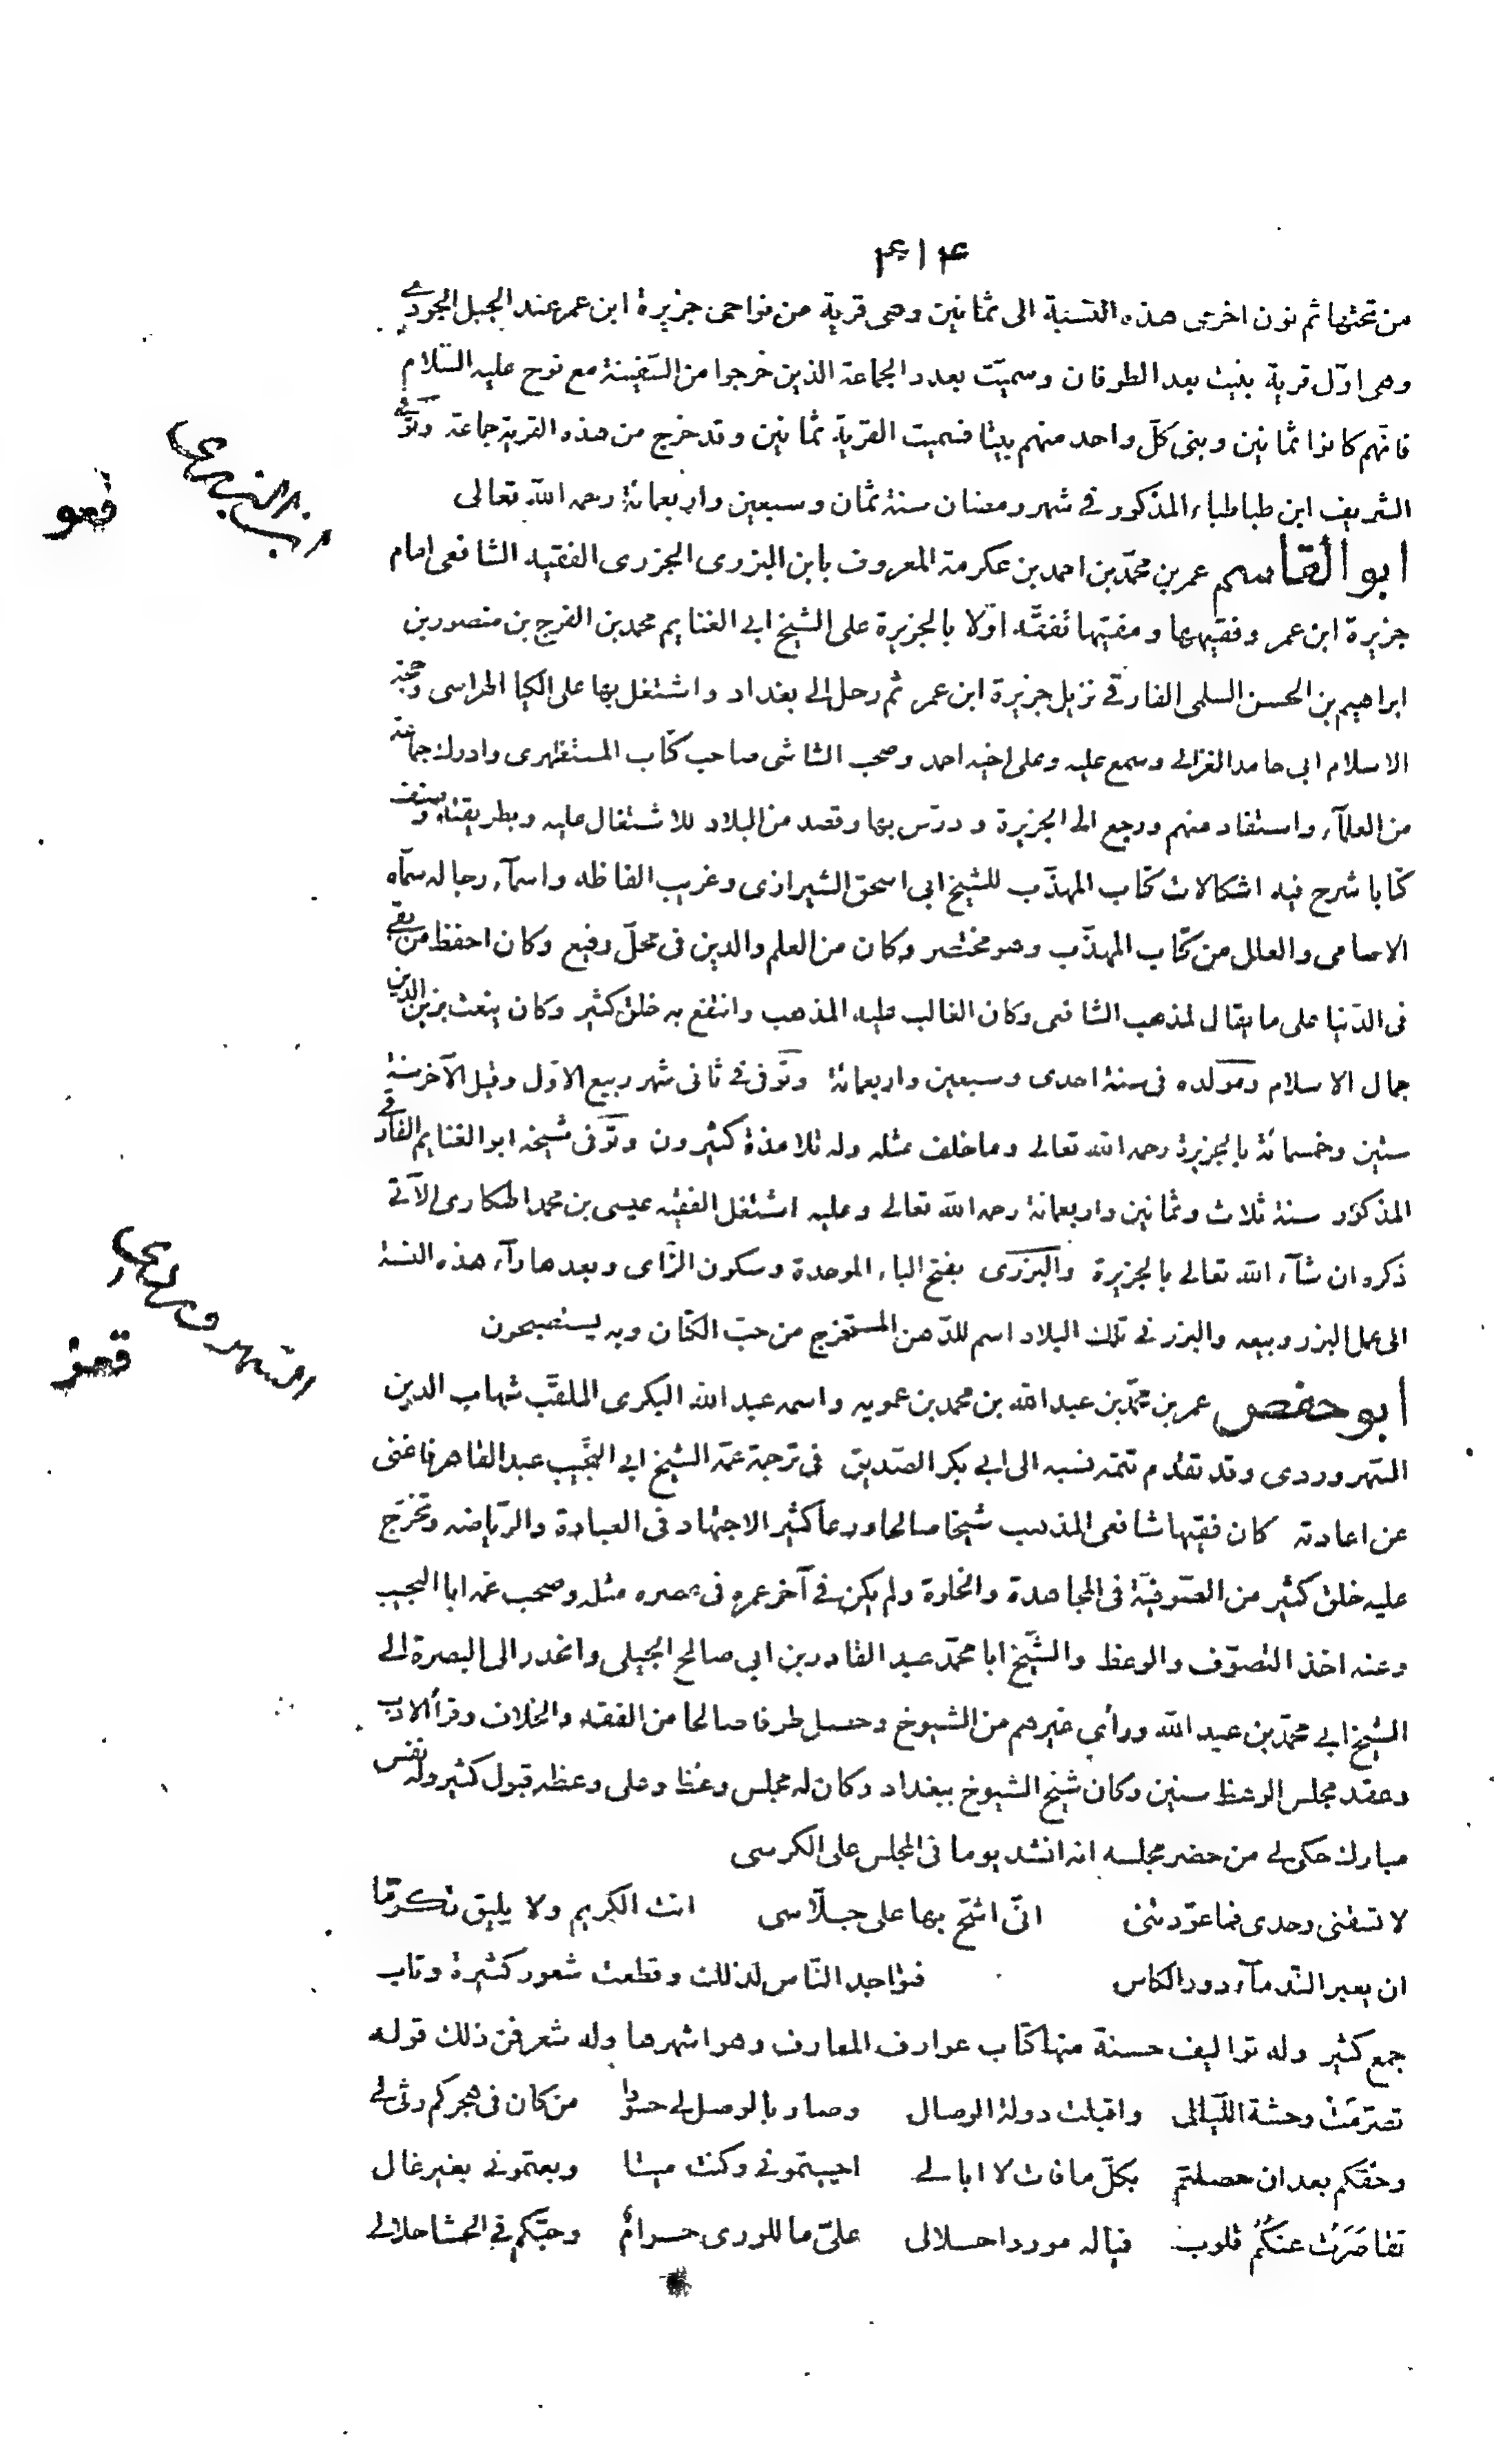 ۴۱۴
من تحتها ثم نون اخرى هذه النسبة الى ثمانين وهى قرية من نواحى جزيرة ابن عمر عند الجبل الجودى
وهى اوّل قرية بنيت بعد الطوفان وسميّت بعدد الجماعة الذين خرجوا من السّفينة مع نوح عليه السّلام
فانّهم كانوا ثمانين وبنى كلّ واحد منهم بيتا فسميت القرية ثمانين وقد خرج من هذه القرية جماعة وتوّفى
الشريف ابن طباطباء المذكور فى شهر رمضان سنة ثمان وسبعين واربعمائة رحمه الله تعالى
ابن البزرى
قعو
ابو القاسم عمر بن محمّد بن احمد بن عكرمة المعروف بابن البزرى الجزرى الفقيه الشافعى امام
جزيرة ابن عمر وفقيهها ومفتيها تفقّه اوّلا بالجزيرة على الشيخ ابى الغنايم محمد بن الفرج بن منصور بن
ابراهيم بن الحسن السلمى الفارقى نزيل جزيرة ابن عمر ثم رحل الى بغداد واشتغل بها على الكيا الهراسى وحجة
الاسلام ابى حامد الغزالى وسمع عليه وعلى اخيه احمد وصحب الشاشى صاحب كتاب المستظهرى وادرك جماعة
من العلمآء واستفاد منهم ورجع الى الجزيرة ودرّس بها وقصد من البلاد للاشتغال عليه وبطريقته وصنف
كتابا شرح فيه اشكالات كتاب المهذّب للشيخ ابى اسحق الشيرازى وغريب الفاظه واسمآء رجاله سمّاه
الاسامى والعلل من كتاب المهذّب وهو مختصر وكان من العلم والدين فى محلّ رفيع وكان احفظ من بقى
فى الدّنيا على ما يقال لمذهب الشافعى وكان الغالب عليه المذهب وانتفع به خلق كثير وكان ينعت بزين الدين
جمال الاسلام ومولده فى سنة احدى وسبعين واربعمائة وتوّفى فى ثانى شهر ربيع الاوّل وقيل الآخر سنة
ستين وخمسمائة بالجزيرة رحمه الله تعالى وما خلف مثله وله تلامذة كثيرون وتوّفى شيخه ابو الغنايم الفارقى
المذكور سنة ثلاث وثمانين واربعمائة رحمه الله تعالى وعليه اشتغل الفقيه عيسى بن محمد الهكارى الآتى
ذكره ان شآء الله تعالى بالجزيرة والبزرى بفتح الباء الموحدة وسكون الزّاى وبعدها رآء هذه النسبة
الى عمل البزر وبيعه والبزر فى تلك البلاد اسم للدّهن المستخرج من حبّ الكتان وبه يستصبحون
السّهروردى
قعز
أبو حفص عمر بن محمّد بن عبد الله بن محمد بن عمويه واسمه عبد الله البكرى الملقّب شهاب الدين
السّهروردى وقد تقدّم تتمّة نسبه الى ابى بكر الصّديق فى ترجمة عمّه الشيخ ابى النجيب عبد القاهر فاغنى
عن اعادته كان فقيها شافعى المذهب شيخا صالحا ورعا كثير الاجتهاد فى العبادة والرّياضه وتخرّج
عليه خلق كثير من الصّوفيّة فى المجاهدة والخلوة ولم يكن فى آخر عمره فى عصره مثله وصحب عمّه ابا النجيب
وعنه اخذ التصوّف والوعظ والشّيخ ابا محمّد عبد القادر بن ابى صالح الجيلى وانحدر الى البصرة الى
الشيخ ابى محمّد بن عبد الله ورأى غيرهم من الشيوخ وحصل طرفا صالحا من الفقه والخلاف وقرأ الادب
وعقد مجلس الوعظ سنين وكان شيخ الشيوخ ببغداد وكان له مجلس وعظ وعلى وعظه قبول كثير وله نفس
مبارك حكى لى من حضر مجلسه انه انشد يوما فى المجلس على الكرسى
لا تسقنى وحدى فما عوّدتنى انّى اشحّ بها على جلّاسى انت الكريم ولا يليق تكرّما
ان يعبر النّدمآء دور الكاس فتواجد النّاس لذلك وقطعت شعور كثيرة وتاب
جمع كثير وله تواليف حسنة منها كتاب عوارف المعارف وهو اشهرها وله شعر فمن ذلك قوله
تصرّمت وحشة اللّيالى واقبلت دولة الوصال وصار بالوصل لى حسودا من كان فى هجركم رثى لى
وحقّكم بعد ان حصلتم بكلّ ما فات لا ابالى احييتمونى وكنت ميتا وبعتمونى بغير غال
تقاصَرَت عنكمُ قلوب فياله موردا حلالى علىّ ما للورى حرامٌ وحبّكم فى الحشا حلالى